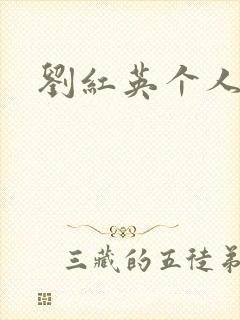 劉紅英个人
三藏的五徒弟